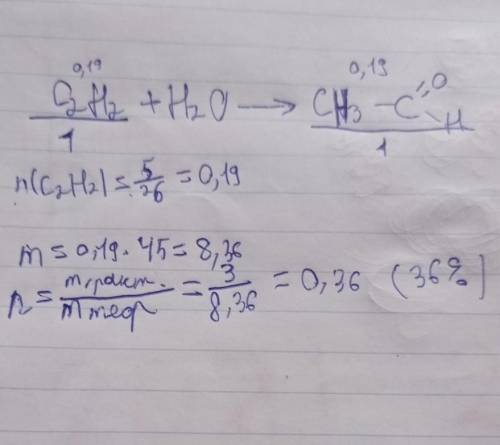 0,19 0,19
C₂H₂ + H₂O ⟶ CH₃ - C =O - H
1 1
n(C₂H₂) = 5/26 = 0,19
m = 0,19 · 45 = 8,36
η = m практ. / m теор = 3/8,36 = 0,36 (36%)